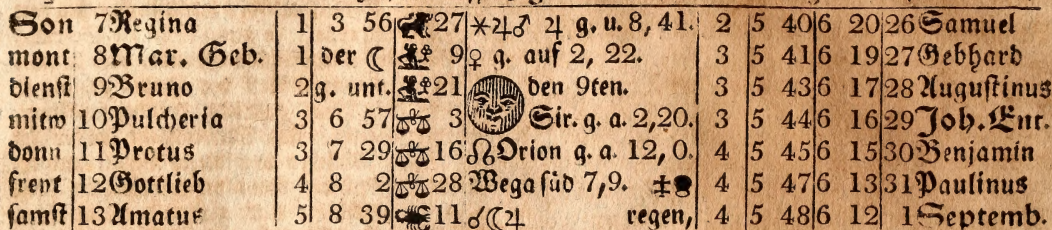 Son 7 Regina 1 3 56 ♍ 27 ⚹♃♂ ♃ g. u. 8, 41. 2 5 40 6 20 26 Samuel
mont 8 Mar. Geb. 1 der ☾ 9 ♀ g. auf 2, 22. 3 5 41 6 19 27 Gebhard
dienst 9 Bruno 2 g. unt. 21 den 9ten. 3 5 43 6 17 28 Augustinus
mitw 10 Pulcheria 3 6 57 ♎ 3 Sir. g. a. 2,20. 3 5 44 6 16 29 Joh. Ent.
donn 11 Protus 3 7 29 ♎ 16 ☊ Orion g. a. 12, 0. 4 5 45 6 15 30 Benjamin
freyt 12 Gottlieb 4 8 2 ♎ 28 Wega süd 7,9. 4 5 47 6 13 31 Paulinus
samst 13 Amatus 5 8 39 ♏ 11 ☌☾♃ regen, 4 5 48 6 12 1 Septemb.